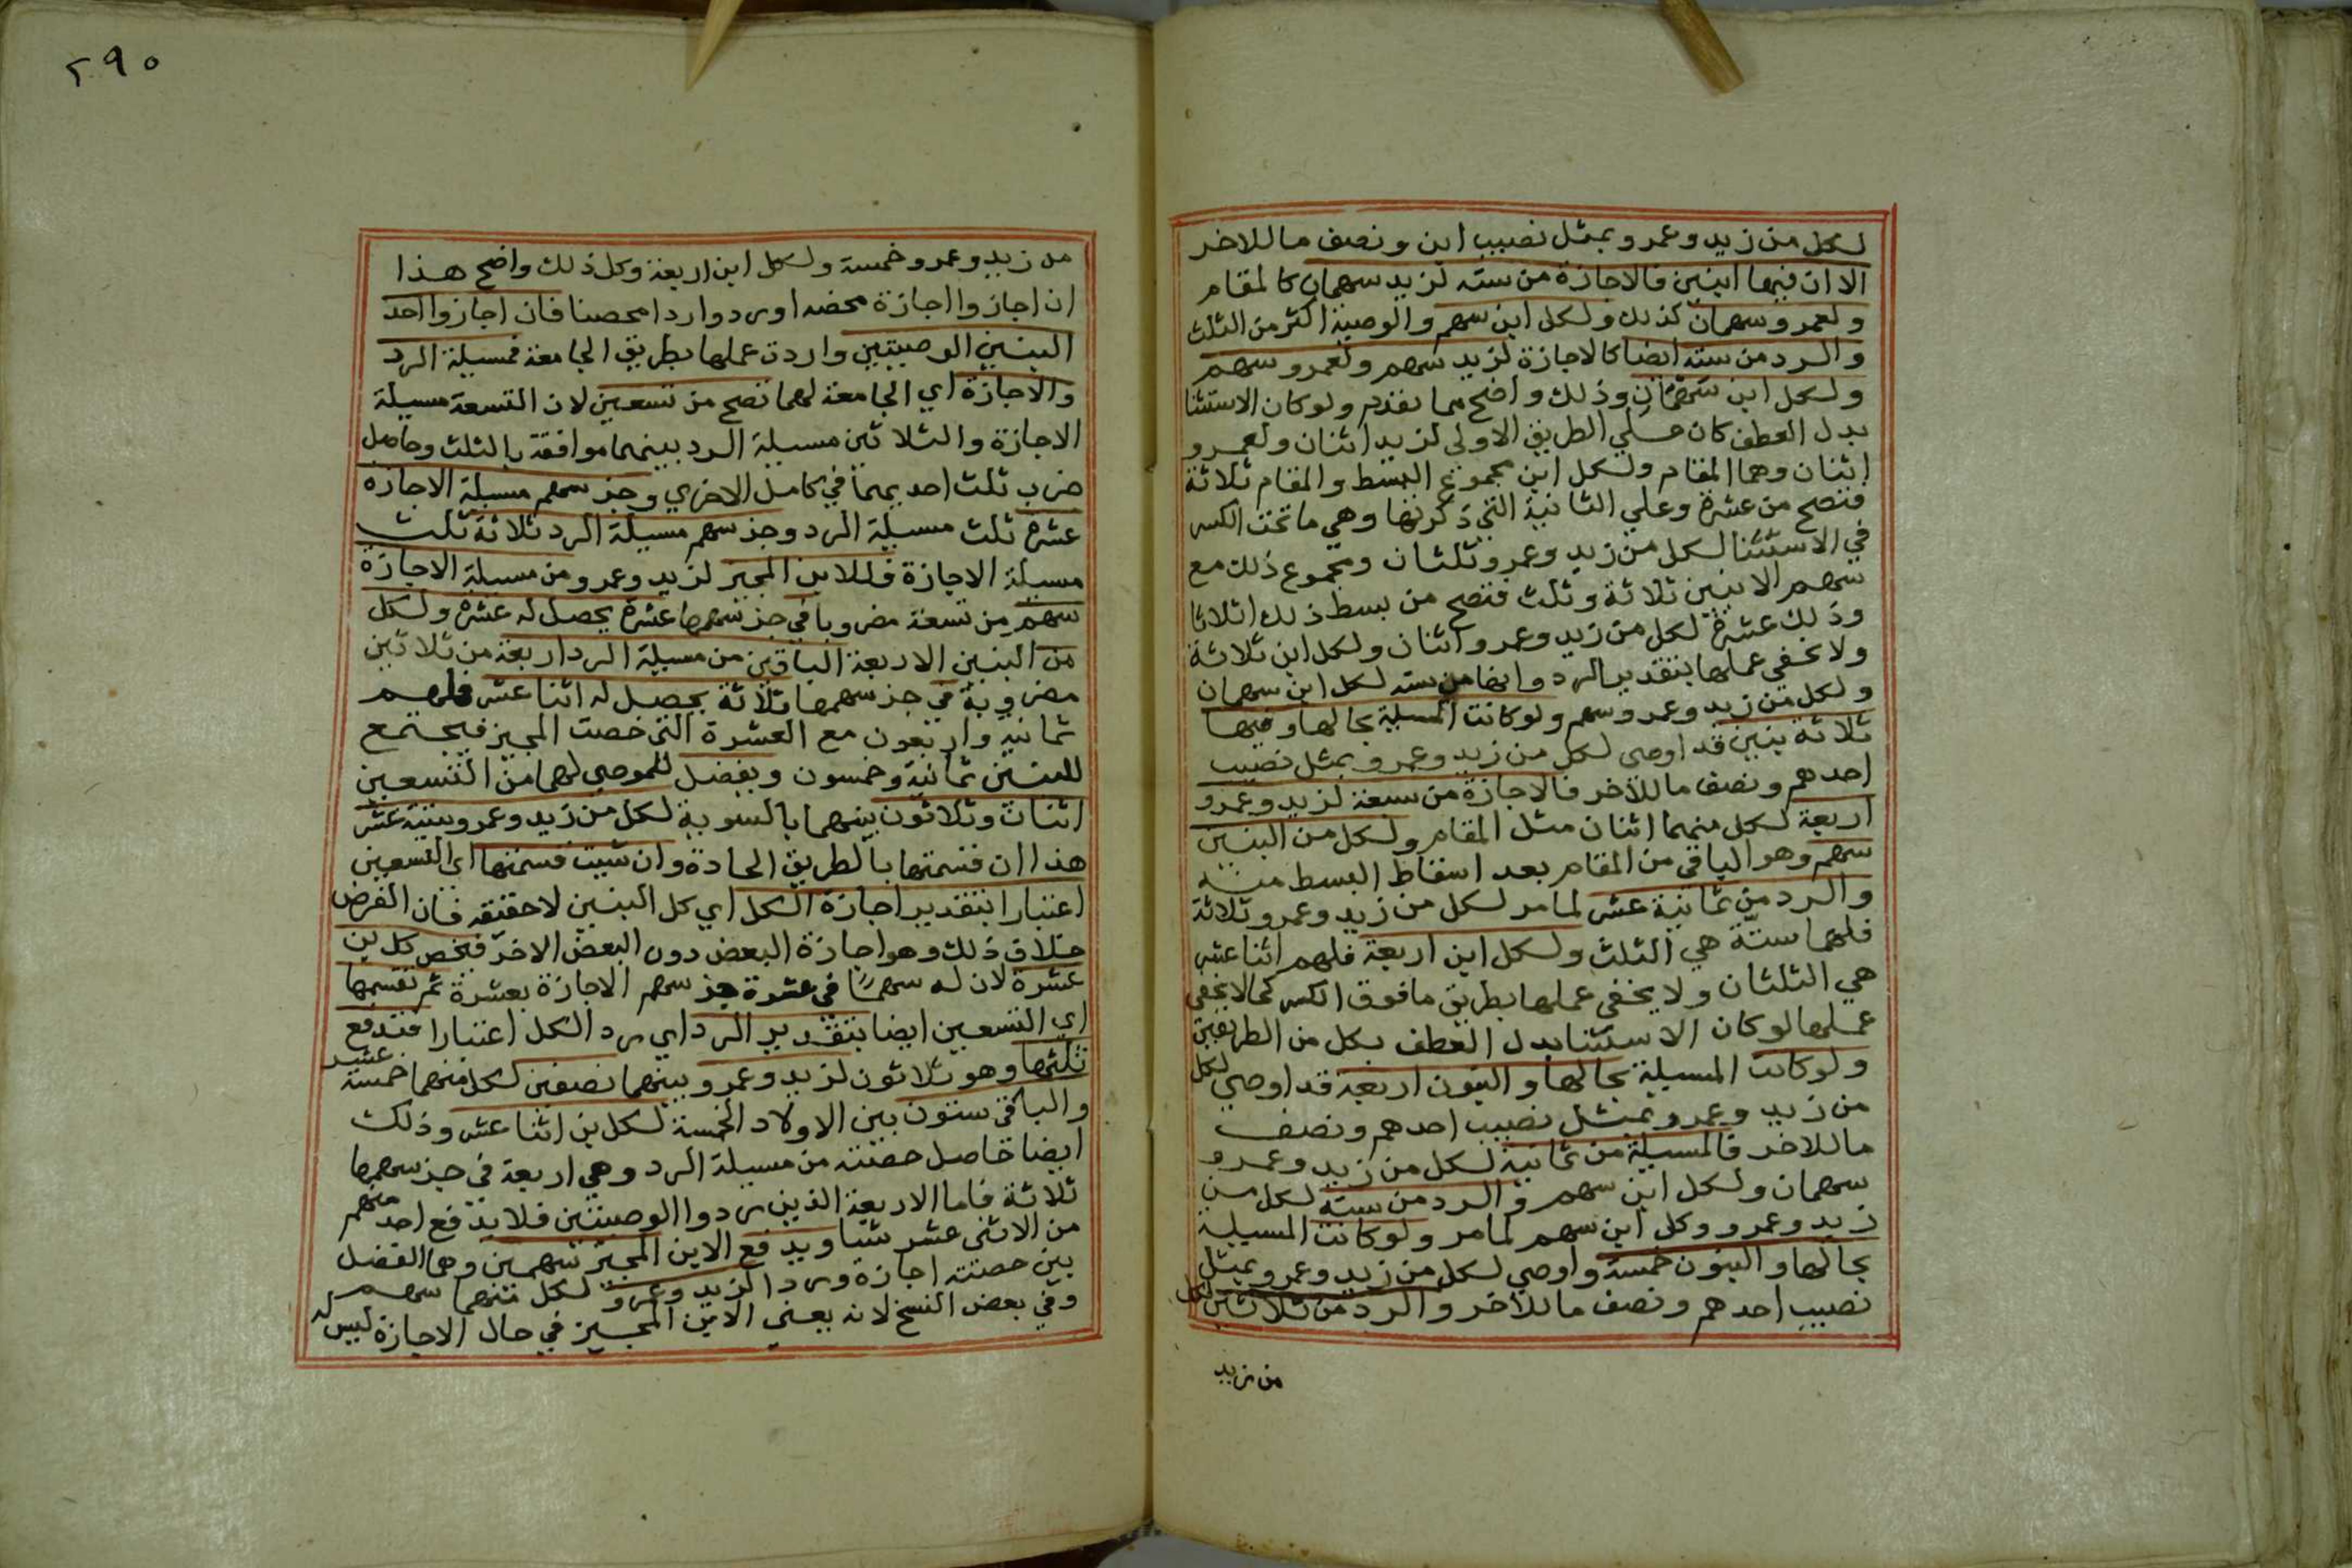 لكل من زيد وعمرو بمثل نصيب ابن ونصف ما للاخر
الا ان فيها ابنين فالاجازة من سته لزيد سهمان كالمقام
ولعمرو سهمان كذلك ولكل ابن سهم والوصية اكثر من الثلث
والرد من سته ايضا كالاجازة لزيد سهم ولعمرو سهم
ولكل ابن سهمان وذلك واضح مما تقدم ولو كان الاستثنا
بدل العطف كان علي الطريق الاولى لزيد اثنان ولعمرو
اثنان وهما المقام ولكل ابن مجموع البسط والمقام ثلاثة
فتصح من عشرة وعلي الثانية التي ذكرتها وهي ما تحت الكسر
في الاستثنا لكل من زيد وعمرو ثلثان ومجموع ذلك مع
سهم الابنين ثلاثة وثلث فتصح من بسط ذلك اثلاثا
وذلك عشرة لكل من زيد وعمرو اثنان ولكل ابن ثلاثة
ولا يخفي عملها بتقدير الرد وانها من سته لكل ابن سهمان
ولكل من زيد وعمرو سهم ولو كانت المسيلة بحالها وفيها
ثلاثة بنين قد اوصى لكل من زيد وعمرو بمثل نصيب
احدهم ونصف ما للآخر فالاجازة من سبعة لزيد وعمرو
اربعة لكل منهما اثنان مثل المقام ولكل من البنين
سهم وهو الباقي من المقام بعد اسقاط البسط منه
والرد من ثمانية عشر لما مر لكل من زيد وعمرو ثلاثة
فلهما ستة هي الثلث ولكل ابن اربعة فلهم اثنا عشر
هي الثلثان ولا يخفى عملها بطريق ما فوق الكسر كما لا يخفى
عملها لو كان الاستثنا بدل العطف بكل من الطريقين
ولو كانت المسيلة بحالها والبنون اربعة قد اوصي لكل
من زيد وعمرو بمثل نصيب احدهم ونصف
ما للاخر فالمسيلة من ثمانية لكل من زيد وعمرو
سهمان ولكل ابن سهم والرد من سته لكل من
زيد وعمرو وكل ابن سهم لما مر ولو كانت المسيلة
بحالها والبنون خمسة واوصي لكل من زيد وعمرو بمثل
نصيب احدهم ونصف ما للآخر والرد من ثلاثين لكل
من زيد
٢٩٠
من زيد وعمرو خمسة ولكل ابن اربعة وكل ذلك واضح هذا
ان اجازوا اجازة محضه او ردوا ردا محصنا فان اجازوا احد
البنين الوصيتين واردت عملها بطريق الجامعة فمسيلة الرد
والاجازة اي الجامعة لهما تصح من تسعين لان التسعة مسيلة
الاجازة والثلاثين مسيلة الرد بينهما موافقة بالثلث وحاصل
ضرب ثلث احديهما في كامل الاخري وجز سهم مسيلة الاجازة
عشرة ثلث مسيلة الرد وجز سهم مسيلة الرد ثلاثة ثلث
مسيلة الاجازة فللابن المجيز لزيد وعمرو من مسيلة الاجازة
سهم من تسعة مضروبا في جز سهمها عشرة يحصل له عشرة ولكل
من البنين الاربعة الباقين من مسيلة الرد اربعة من ثلاثين
مضروبة في جز سهمها ثلاثة يحصل له اثنا عشر فلهم
ثمانيه واربعون مع العشرة التي خصت المجيز فيجتمع
للبنين ثمانية وخمسون ويفضل للموصي لهما من التسعين
اثنان وثلاثون بينهما بالسوية لكل من زيد وعمرو ستة عشر
هذا ان قسمتها بالطريق الجادة وان شيت قسمتها اي التسعين
اعتبارا بتقدير اجازة الكل اي كل البنين لا حقيقه فان الفرض
خلاف ذلك وهو اجازة البعض دون البعض الاخر فيخص كل ابن
عشرة لان له سهما في عشرة جز سهم الاجازة بعشرة ثم تقسمها
اي التسعين ايضا بتقدير الرد اي رد الكل اعتبارا فتدفع
ثلثها وهو ثلاثون لزيد وعمرو بينهما نصفين لكل منهما خمسة عشر
والباقي ستون بين الاولاد الخمسة لكل ابن اثنا عشر وذلك
ايضا حاصل حصته من مسيلة الرد وهي اربعة في جز سهمها
ثلاثة فاما الاربعة الذين ردوا الوصيتين فلا يدفع احد منهم
من الاثني عشر شيا ويدفع الابن المجيز سهمين وهما الفضل
بين حصته اجازة وردا لزيد وعمرو لكل منهما سهم
وفي بعض النسخ لانه يعني الابن المجيز في حال الاجازة ليس له